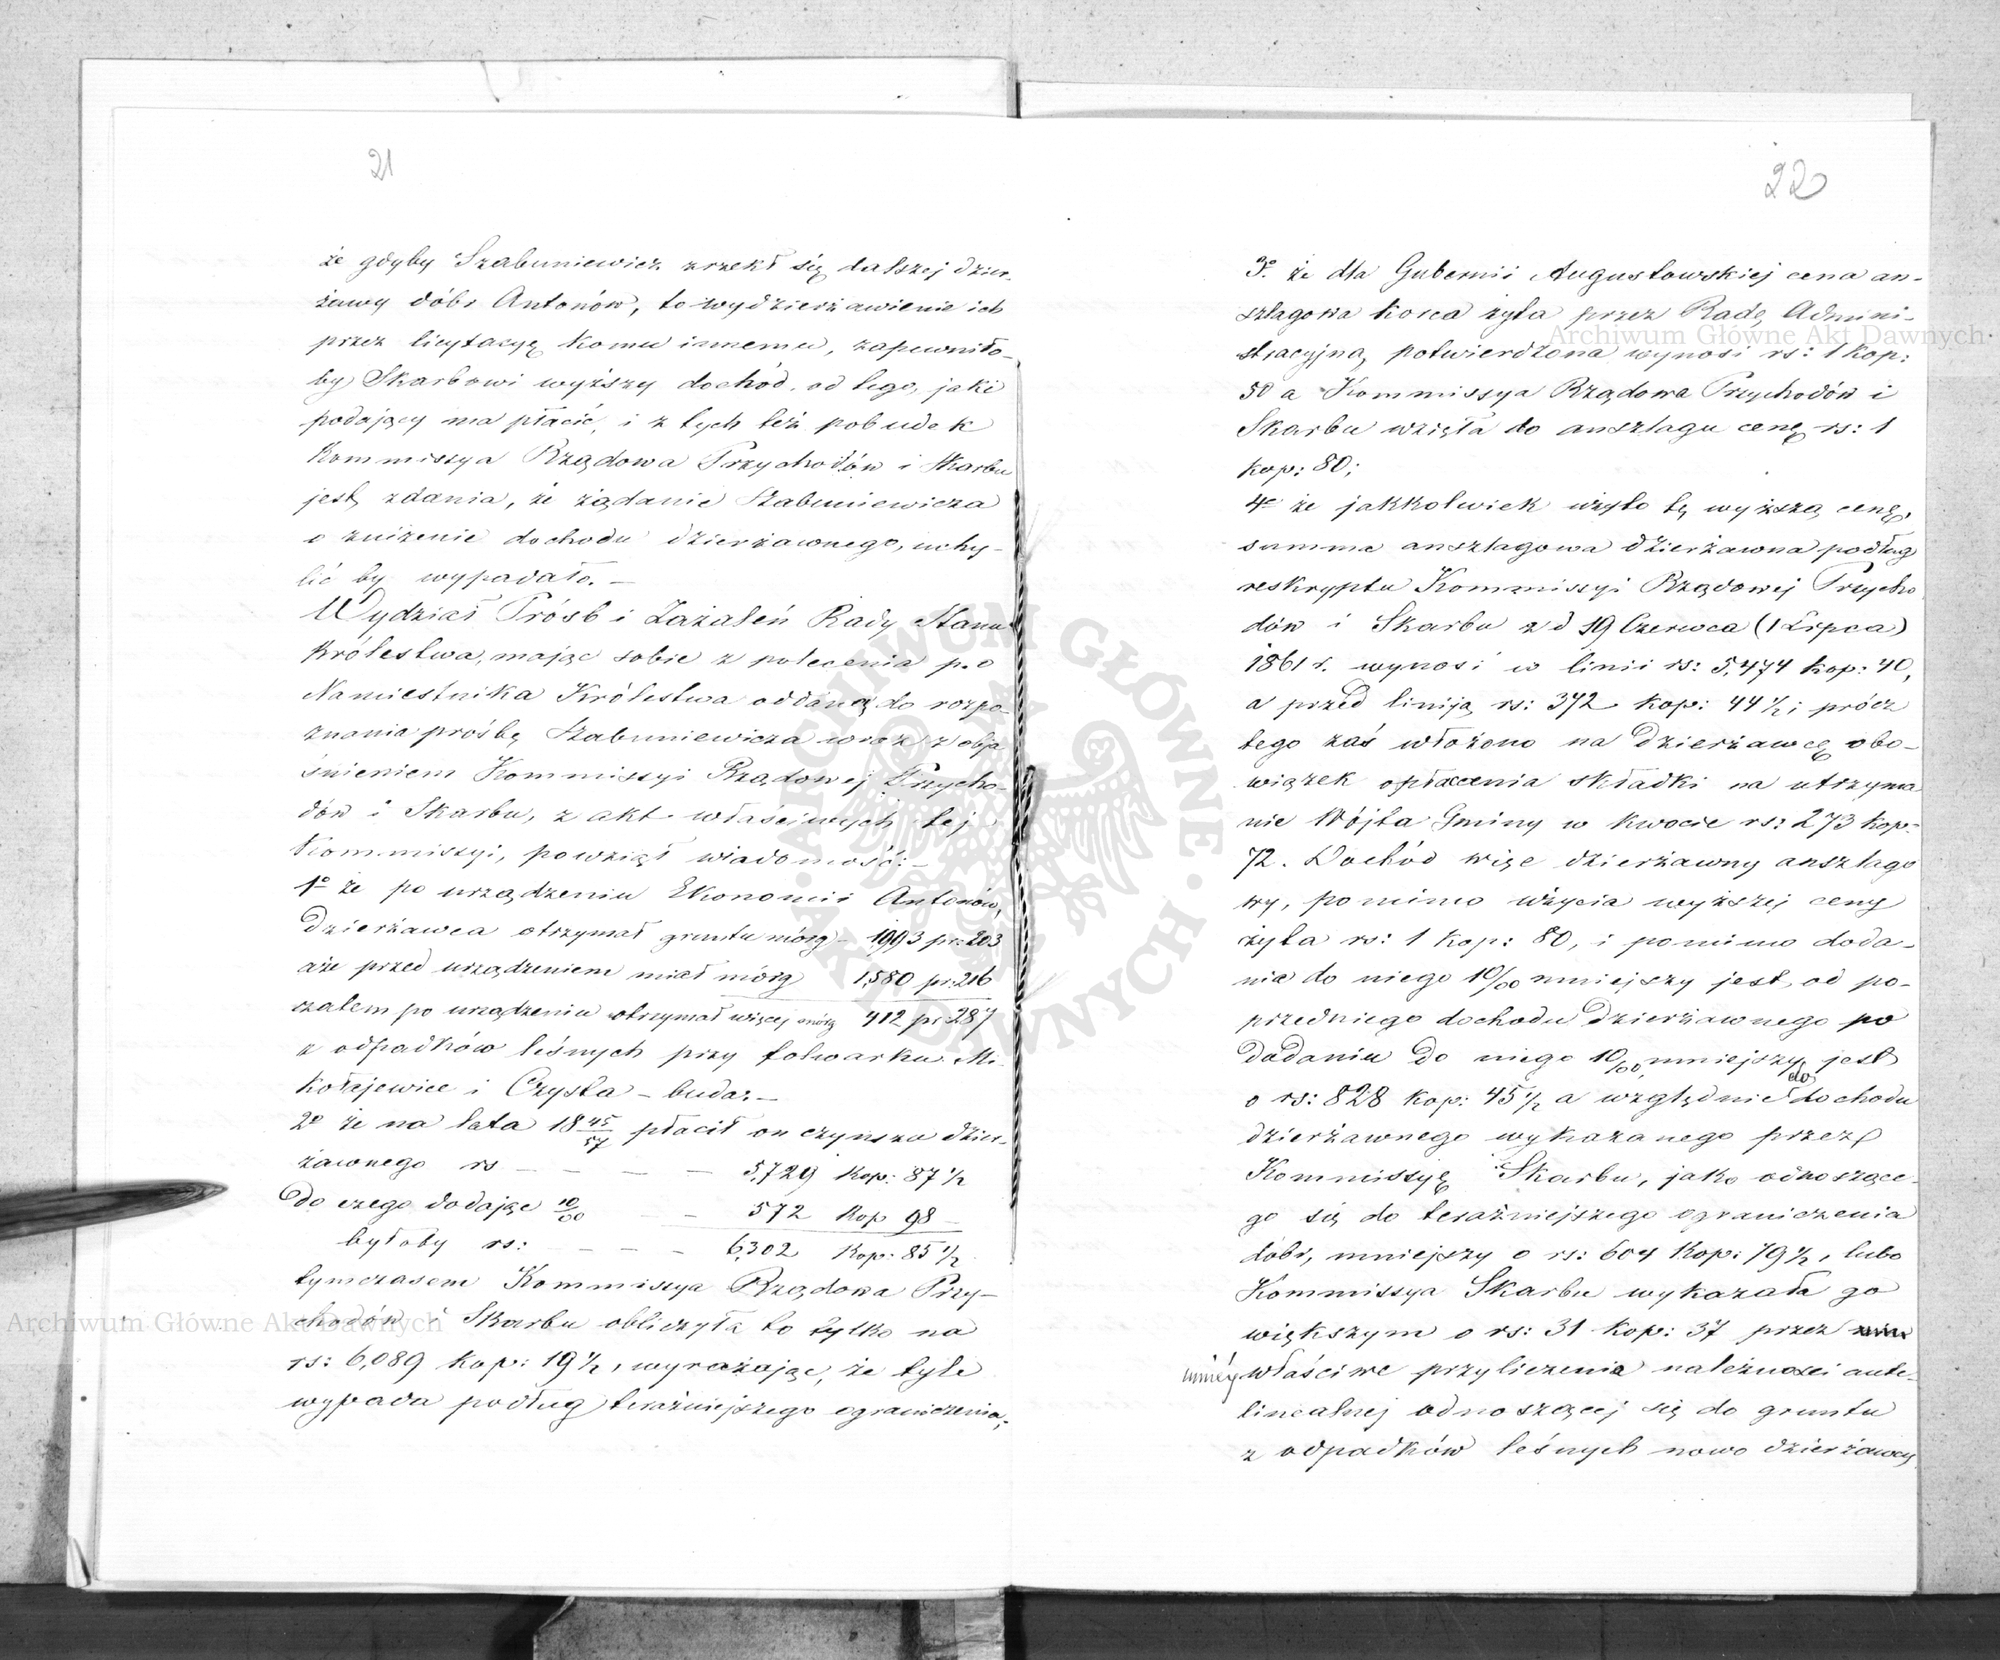 21
że gdyby Szabuniewicz zrzekł się dalszej dzier-
żawy dóbr Antonów, to wydzierżawienie ich
przez licytacyę komu innemu, zapewniło-
by Skarbowi wyższy dochód, od tego, jaki
podający ma płacić, i z tych też pobudek
Kommissya Rządowa Przychodów i Skarbu
jest zdania, że żądanie Szabuniewicza
o zniżenie dochodu dzierżawnego, uchy-
lić by wypadało. —
Wydział Próśb i Zażaleń Rady Stanu
Królestwa, mając sobie z polecenia p.o
Namiestnika Królestwa oddaną do rozpo-
znania prośbę Szabuniewicza wraz z obja
śnieniem Kommissyi Rządowej Przycho-
dów i Skarbu, z akt właściwych tej
Kommissyi, powziął wiadomość: —
1o że po urządzeniu Ekonomii Antonów,
Dzierżawca otrzymał gruntu mórg - 1,993 pr: 203
aże przed urządzeniem miał mórg 1,580 pr: 216
zatem po urządzeniu otrzymał więcej mórg 412 pr 287
z odpadków leśnych przy folwarku Mi-
kołajewice i Czysta - buda: —
2o że na lata 18 45/57 płacił on czynszu dzier-
żawnego rs — — — — 5,729 Kop: 87 1/2
Do czego dodając 10/00 — — 572 Kop 98 —
byłoby rs: — — — — 6,302 Kop: 85 1/2
tymczasem Kommissya Rządowa Przy-
chodów i Skarbu obliczyła to tylko na
rs: 6,089 kop: 19 1/2, wyrażając, że tyle
wypada podług teraźniejszego ograniczenia;
22
3o. że dla Gubernii Augustowskiej cena an-
szlagowa korca żyta przez Radę Admini-
stracyjną potwierdzona wynosi rs: 1 kop:
50 a Kommissya Rządowa Przychodów i
Skarbu wzięła do anszlagu cenę rs: 1
kop: 80;
4o że jakkolwiek użyto tę wyższą cenę,
summa anszlagowa dzierżawna podług
reskryptu Kommissyi Rządowej Przycho
dów i Skarbu z d 19 Czerwca (1 Lipca)
1861 r. wynosi w linii rs: 5,474 kop: 40,
a przed linija rs: 372 kop: 44 1/2; prócz
tego zaś włożono na Dzierżawcę obo-
wiązek opłacania składki na utrzyma
nie Wójta Gminy w kwocie rs: 273 kop:
72. Dochód więc dzierżawny anszlago
wy, pomimo użycia wyższej ceny
żyta rs: 1 kop: 80, i pomimo doda-
nia do niego 10/00 mniejszy jest, od po-
przedniego dochodu Dzierżawnego po
dodaniu do niego 10/00, mniejszy jest
o rs: 828 kop: 45 1/2 a względnie do dochodu
dzierżawnego wykazanego przez
Kommissyę Skarbu, jako odnoszące-
go się do teraźniejszego ograniczenia
dóbr, mniejszy o rs: 604 kop: 79 1/2, lubo
Kommissya Skarbu wykazała go
większym o rs: 31 kop: 37 przez
właściwe przyliczenia należności ante-
linealnej odnoszącej się do gruntu
z odpadków leśnych nowo dzierżawcy
Archiwum Główne Akt Dawnych
Archiwum Główne Akt Dawnych
ARCHIWUM GŁÓWNE AKT DAWNYCH